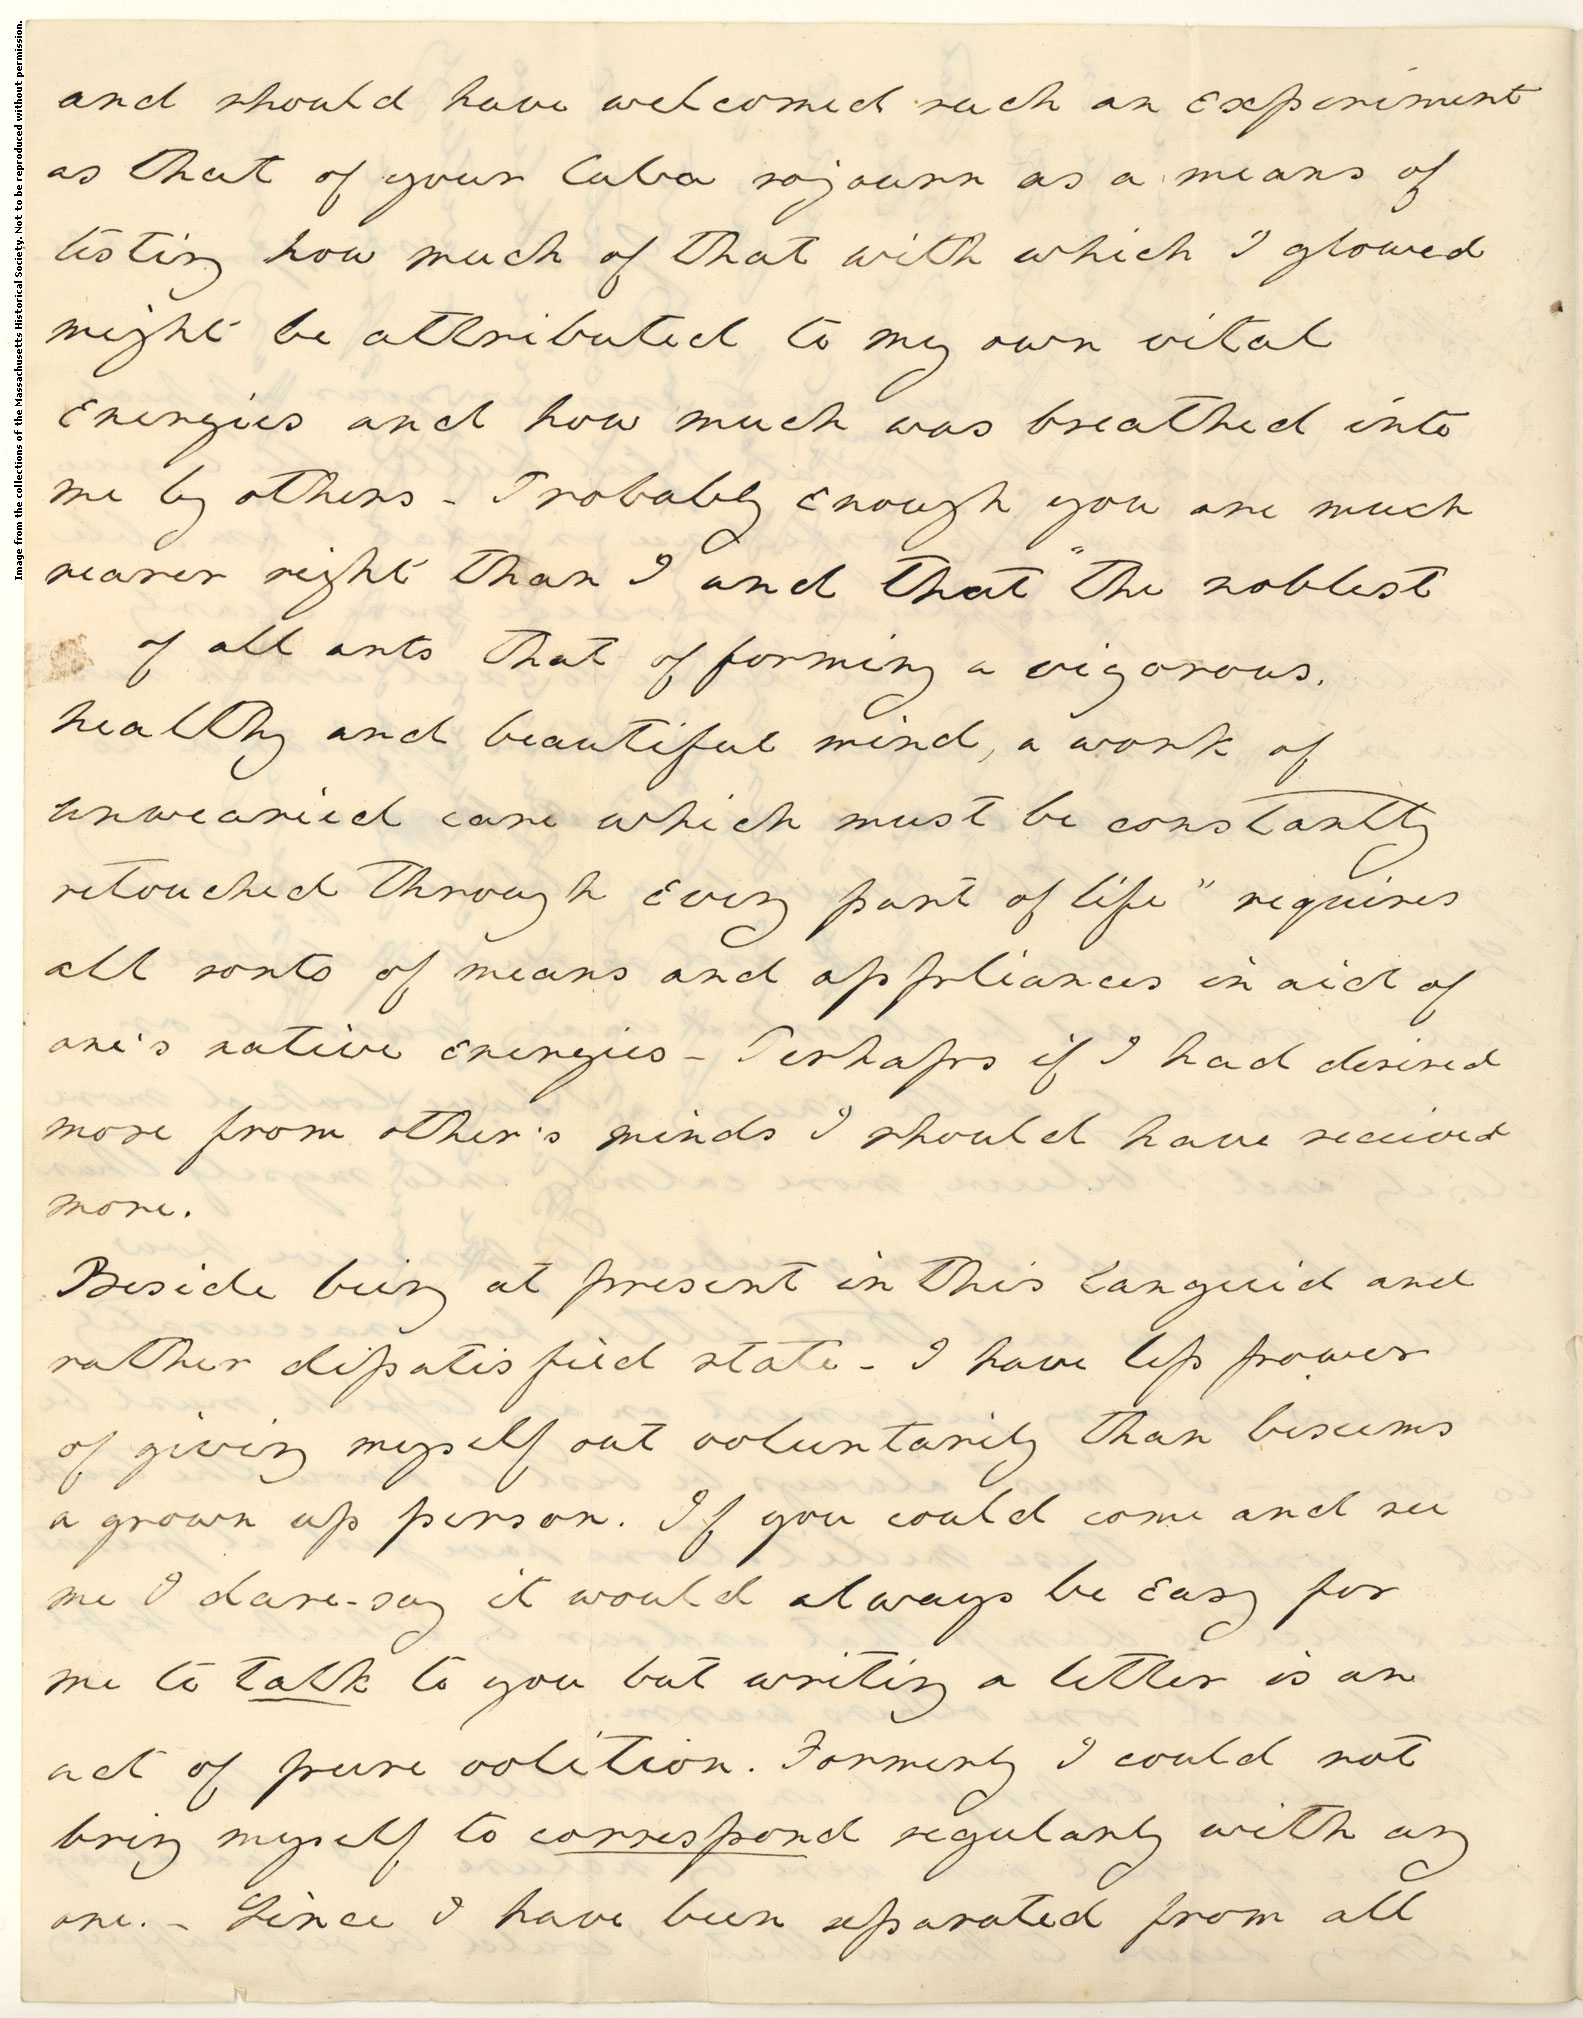 Image from the collections of the Massachusetts Historical Society. Not to be reproduced without permission.
and should have welcomed such an experiment
as that of your Cuba sojourn as a means of
testing how much of that with which I glowed
might be attributed to my own vital
energies and how much was breathed into
me by others - Probably enough you are much
nearer right than I and that "the noblest
of all arts that of forming a vigorous.
healthy and beautiful mind, a work of
unwearied care which must be constantly
retouched through every part of life" requires
all sorts of means and appliances in aid of
one's native energies - Perhaps if I had desired
more from other's minds I should have received
more.
Beside being at present in this languid and
rather dissatisfied state - I have less power
of giving myself out voluntarily than beseems
a grown up person. If you could come and see
me I dare-say it would always be easy for
me to talk to you but writing a letter is an
act of pure volition. Formerly I could not
bring myself to correspond regularly with any
one. - Since I have been separated from all